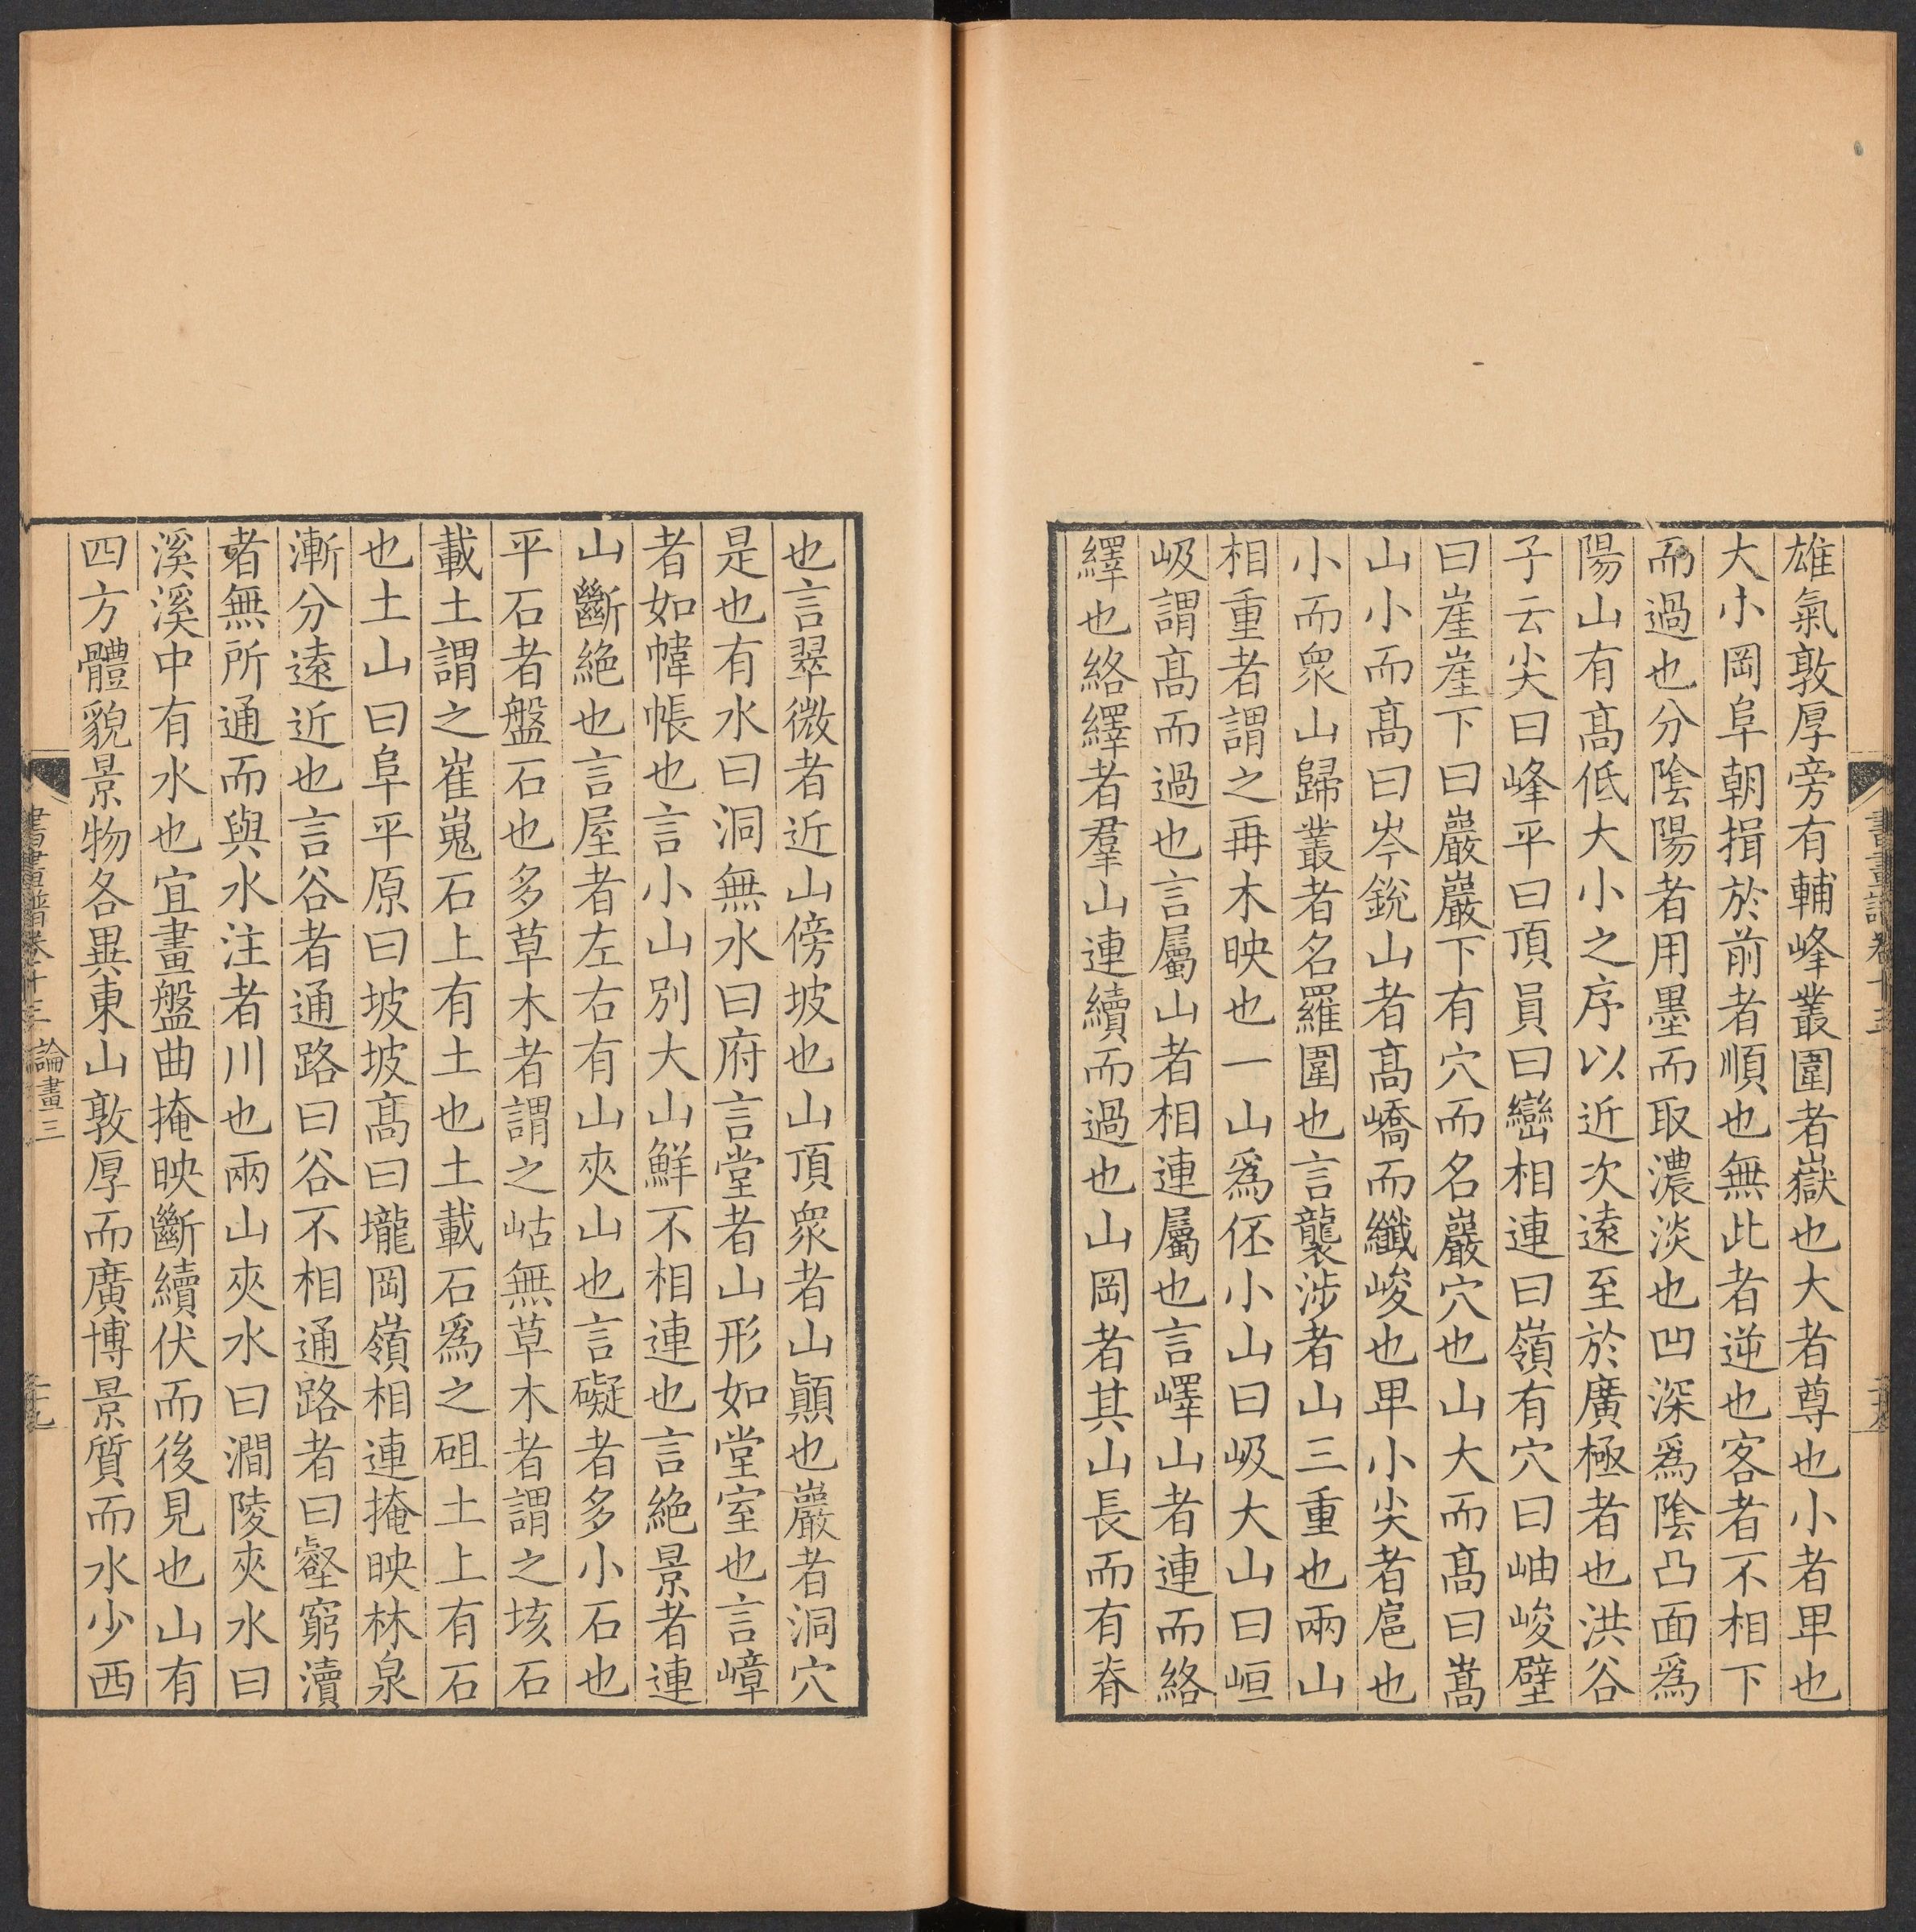 雄氣敦厚旁有輔峰叢圍者嶽也大者尊也小者卑也
大小岡阜朝揖於前者順也無此者逆也客者不相下
而過也分陰陽者用墨而取濃淡也凹深爲陰凸面爲
陽山有髙低大小之序以近次遠至於廣極者也洪谷
子云尖曰峰平曰頂員曰巒相連曰嶺有穴曰岫峻壁
曰崖崖下曰巖巖下有穴而名巖穴也山大而髙曰嵩
山小而髙曰岑銳山者髙嶠而纖峻也卑小尖者扈也
小而衆山歸叢者名羅圍也言襲涉者山三重也兩山
相重者謂之再木映也一山爲伾小山曰岌大山曰峘
岌謂髙而過也言屬山者相連屬也言嶧山者連而絡
繹也絡繹者羣山連續而過也山岡者其山長而有脊
也言翠微者近山傍坡也山頂衆者山顚也巖者洞穴
是也有水曰洞無水曰府言堂者山形如堂室也言嶂
者如幃帳也言小山別大山鮮不相連也言絶景者連
山斷絶也言屋者左右有山夾山也言礙者多小石也
平石者盤石也多草木者謂之岵無草木者謂之垓石
載土謂之崔嵬石上有土也土載石爲之砠土上有石
也土山曰阜平原曰坡坡髙曰壠岡嶺相連掩映林泉
漸分遠近也言谷者通路曰谷不相通路者曰壑窮瀆
者無所通而與水注者川也兩山夾水曰澗陵夾水曰
溪溪中有水也宜畫盤曲掩映斷續伏而後見也山有
四方體貌景物各異東山敦厚而廣博景質而水少西
書畫譜卷十三 論畫三